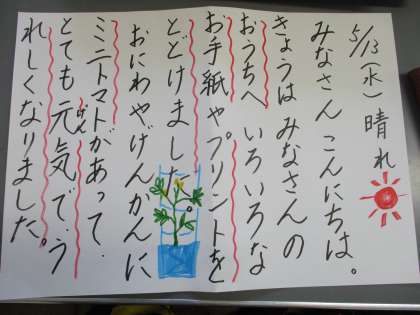 5/13(水) 晴れ
みなさん こんにちは。
きょうは みなさんの
おうちへ いろいろな
お手紙や プリントを
とどけました。
おにわや げんかんに
ミニトマトが あって、
とても 元気で、う
げんき
れしくなりました。